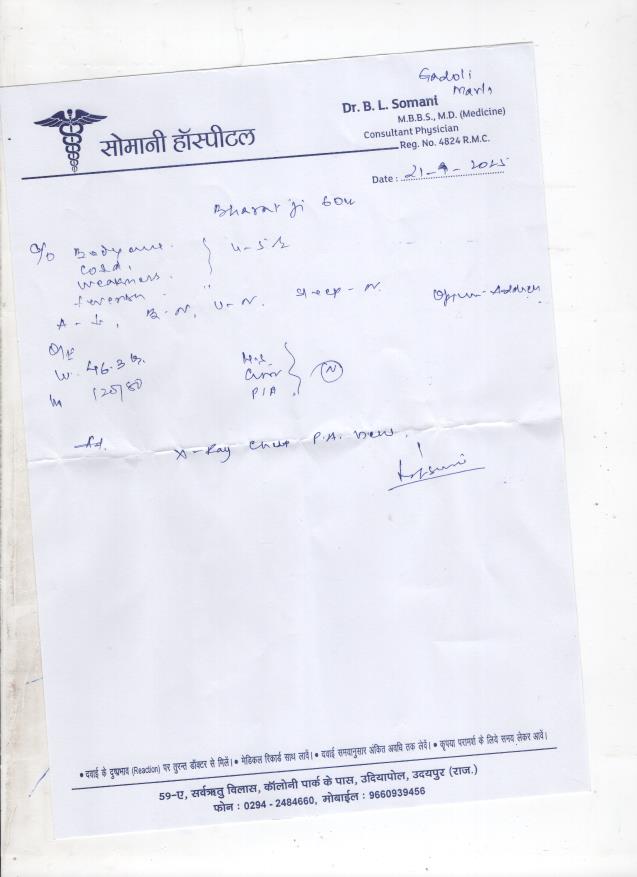 Gadoli
Marlg
सोमानी हॉस्पीटल
Dr. B. L. Somani
M.B.B.S., M.D. (Medicine)
Consultant Physician
Reg. No. 4824 R.M.C.
Date : 21-9-2025
Bharat ji 60y
C/o Bodyache.
cold,
weakness.
A-
B-N, U-N. Sleep-N.
O/E
W. 46.3 k.
120/80
P/A
N
Ad. X-Ray Chest P.A. View.
• दवाई के दुष्प्रभाव (Reaction) पर तुरन्त डॉक्टर से मिलें। • मेडिकल रिकार्ड साथ लावें। • दवाई समयानुसार अंकित अवधि तक लेवें। • कृपया परामर्श के लिये समय लेकर आवें।
59-ए, सर्वऋतु विलास, कॉलोनी पार्क के पास, उदियापोल, उदयपुर (राज.)
फोन : 0294 - 2484660, मोबाईल : 9660939456